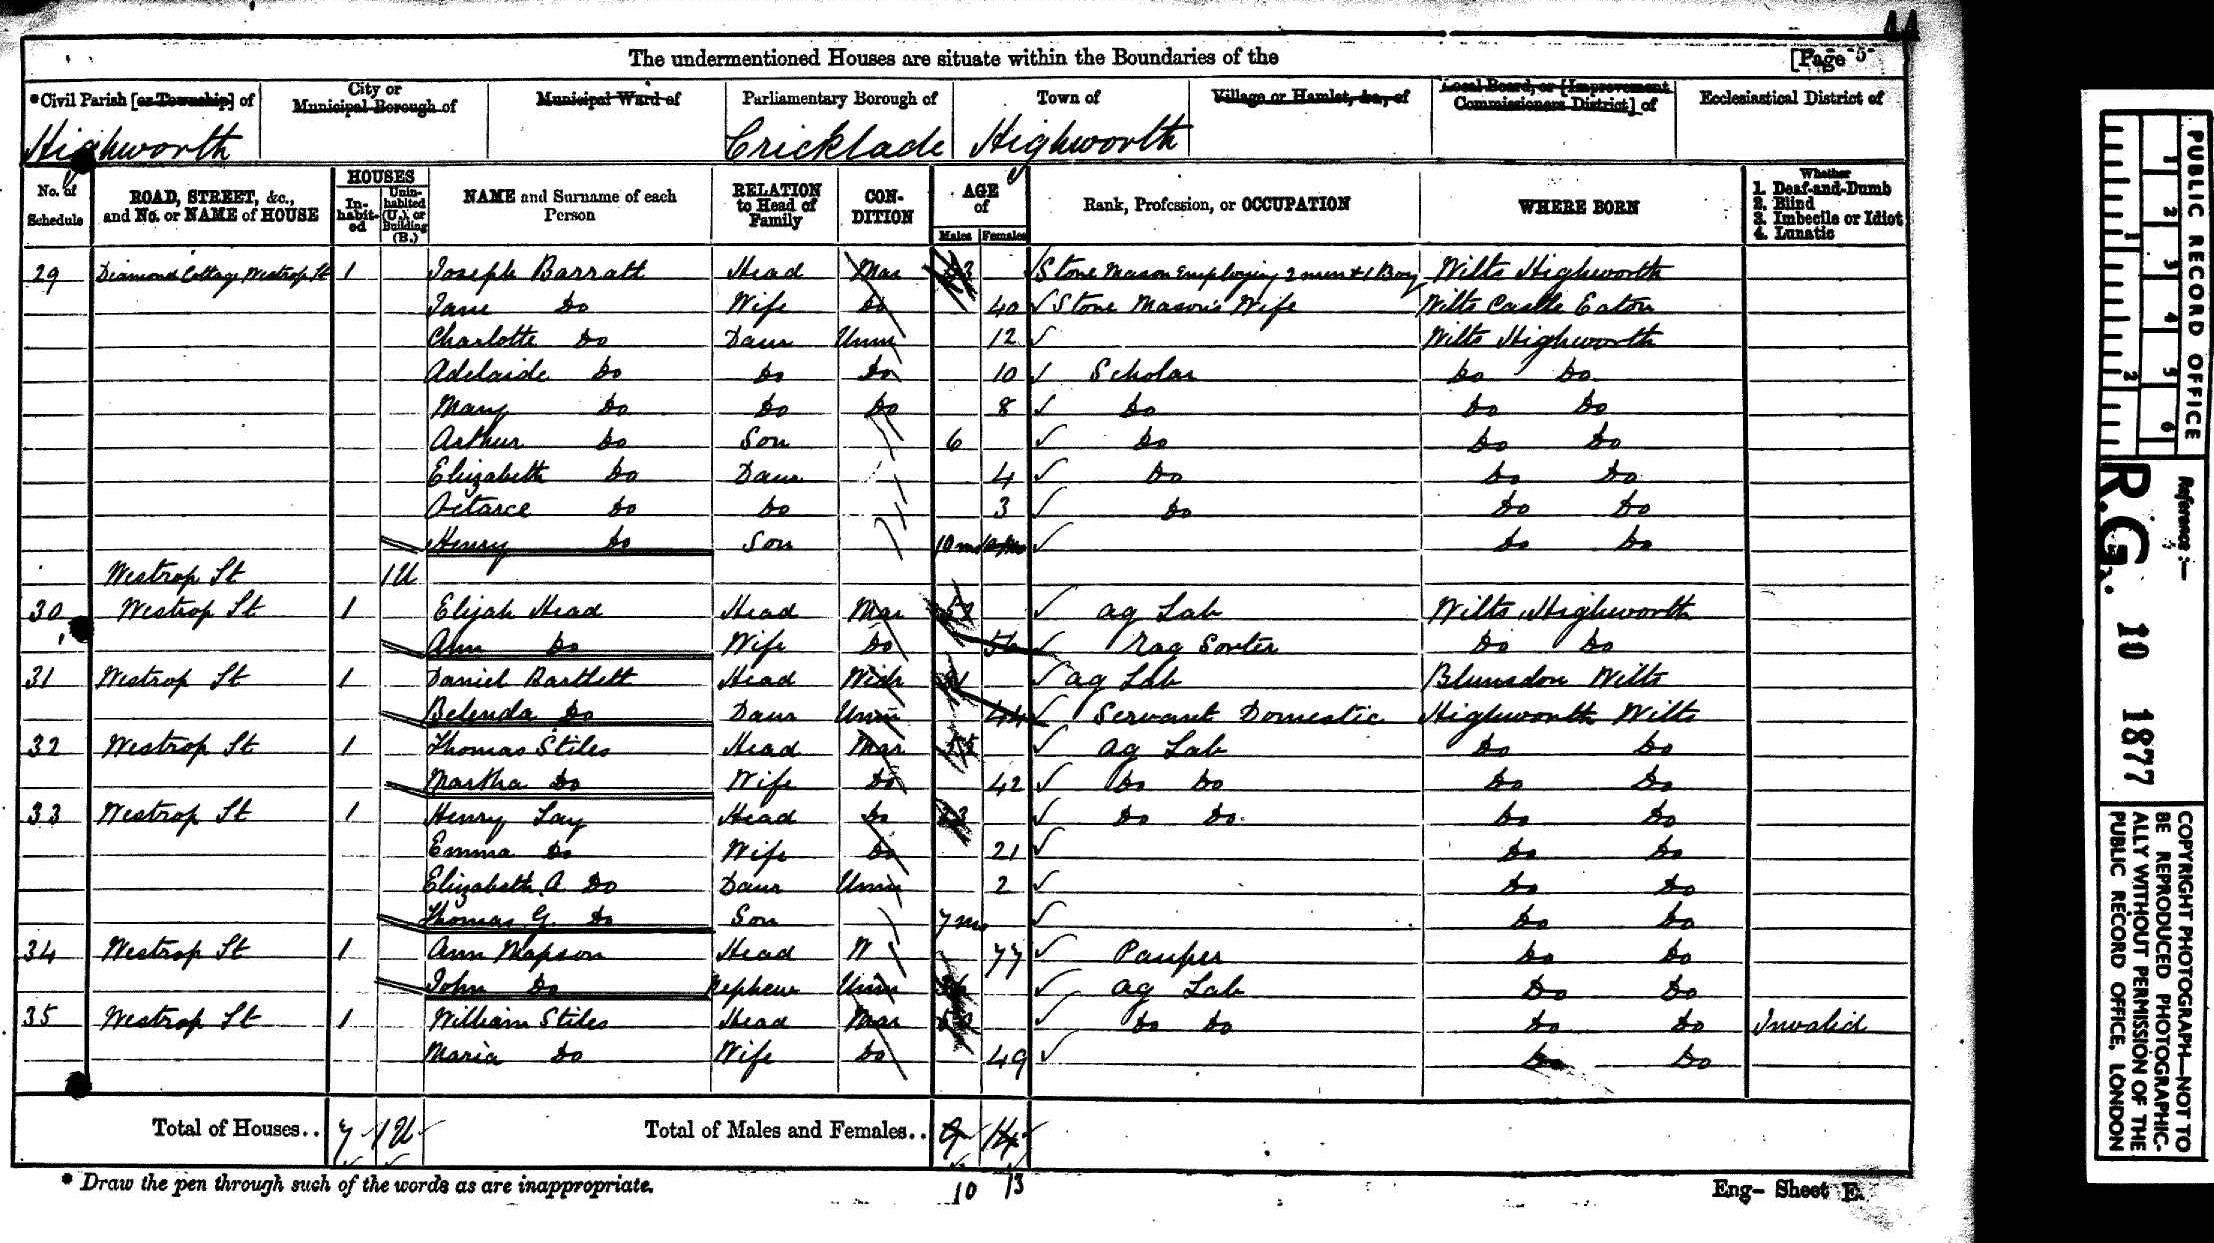 44
The undermentioned Houses are situate within the Boundaries of the [Page 5
*Civil Parish [or Township] of City or Municipal Borough of Municipal Ward of Parliamentary Borough of Town of Village or Hamlet, &c., of Local Board, or [Improvement Commissioners District] of Ecclesiastical District of
Highworth Cricklade Highworth
No. of Schedule ROAD, STREET, &c., and No. or NAME of HOUSE HOUSES Inhabited Uninhabited (U.), or Building (B.) NAME and Surname of each Person RELATION to Head of Family CONDITION AGE of Males Females Rank, Profession, or OCCUPATION WHERE BORN Whether 1. Deaf-and-Dumb 2. Blind 3. Imbecile or Idiot 4. Lunatic
29 Diamond Cottage Westrop St 1 Joseph Barratt Head Mar Stone Mason Employing 2 men & 1 Boy Wilts Highworth
Jane Do Wife Do 40 Stone Mason's Wife Wilts Castle Eaton
Charlotte Do Daur Unm 12 Wilts Highworth
Adelaide Do Do Do 10 Scholar Do Do
Mary Do Do Do 8 Do Do Do
Arthur Do Son 6 Do Do Do
Elizabeth Do Daur 4 Do Do Do
Octarce Do Do 3 Do Do Do
Henry Do Son 10 m Do Do
Westrop St 1U
30 Westrop St 1 Elijah Head Head Mar Ag Lab Wilts Highworth
Ann Do Wife Do 54 Rag Sorter Do Do
31 Westrop St 1 Daniel Bartlett Head Widr Ag Lab Blunsdon Wilts
Belenda Do Daur Unm 44 Servant Domestic Highworth Wilts
32 Westrop St 1 Thomas Stiles Head Mar Ag Lab Do Do
Martha Do Wife Do 42 Do Do Do Do
33 Westrop St 1 Henry Lay Head Do Do Do Do Do
Emma Do Wife Do 21 Do Do
Elizabeth A Do Daur Unm 2 Do Do
Thomas G. Do Son 7 mo Do Do
34 Westrop St 1 Ann Mapson Head W 77 Pauper Do Do
John Do Nephew Unm Ag Lab Do Do
35 Westrop St 1 William Stiles Head Mar Do Do Do Do Invalid
Maria Do Wife Do 49 Do Do
Total of Houses.. 7 1U Total of Males and Females.. 9 14
* Draw the pen through such of the words as are inappropriate. 10 13 Eng- Sheet E.
PUBLIC RECORD OFFICE
1 2 3 4 5 6
1 2
Reference:-
R.G. 10 1877
COPYRIGHT PHOTOGRAPH—NOT TO
BE REPRODUCED PHOTOGRAPHIC-
ALLY WITHOUT PERMISSION OF THE
PUBLIC RECORD OFFICE, LONDON